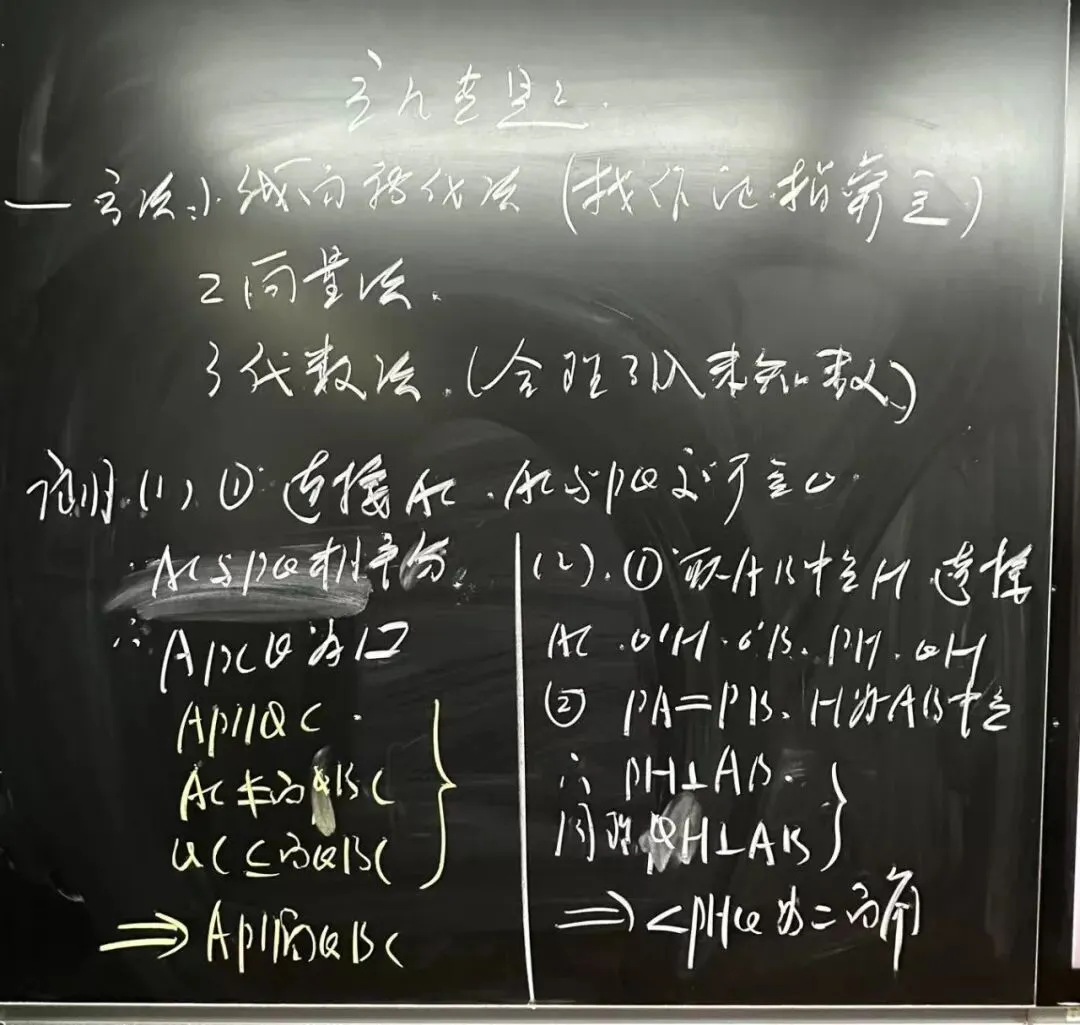 立几专题2.
一 方法:1. 线面转化法 (找作记指算定)
2 向量法.
3 代数法.(合理引入未知数)
证明.(1) ① 连接AC . AC与PQ交于点O.
∴AC与PQ相平分
∴APCQ为▱
AP//QC .
AC⊄面QBC
QC⊆面QBC
⇒ AP//面QBC
(2). ① 取AB中点H 连接
AC . O'H . O'B. PH . QH
② PA=PB. H为AB中点
∴ PH⊥AB.
同理QH⊥AB
⇒ <PHQ为二面角